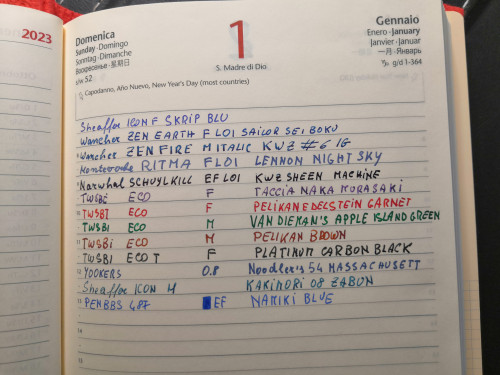 2023
Domenica
Sunday · Domingo
Sonntag · Dimanche
Воскресенье · 星期日
w 52
1
S. Madre di Dio
Gennaio
Enero · January
Janvier · Januar
一月 · Январь
g/d 1-364
Capodanno, Año Nuevo, New Year's Day (most countries)
Sheaffer ICON F SKRIP BLU
Wancher ZEN EARTH F LOI SAILOR SEI BOKU
Wancher ZEN FIRE M ITALIC KWZ #6 IG
Monteverde RITMA F LOI LENNON NIGHT SKY
Narwhal SCHUYLKILL EF LOI KWZ SHEEN MACHINE
TWSBI ECO F TACCIA NAKA MURASAKI
TWSBI ECO F PELIKAN EDELSTEIN GARNET
TWSBI ECO M VAN DIEMAN'S APPLE ISLAND GREEN
TWSBI ECO M PELIKAN BROWN
TWSBI ECO T F PLATINUM CARBON BLACK
YOOKERS 0.8 Noodler's 54 MASSACHUSETT
Sheaffer ICON M KAKIMORI 08 ZABUN
PENBBS 487 EF NAMIKI BLUE